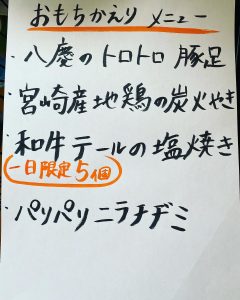 おもちかえり メニュー
・八慶のトロトロ 豚足
・宮崎産地鶏の炭火やき
・和牛テールの塩焼き
一日限定5個
・パリパリニラチヂミ